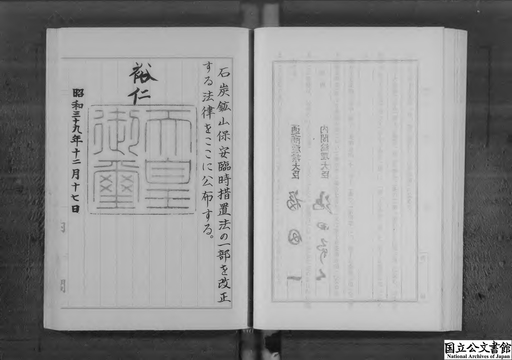 石炭鉱山保安臨時措置法の一部を改正
する法律をここに公布する。
裕仁
天皇御璽
昭和三十九年十二月十七日
内閣総理大臣
通商産業大臣
国立公文書館
National Archives of Japan